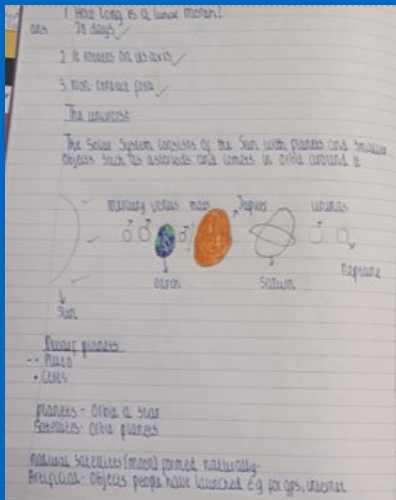 1. How long is a lunar month?
ans 28 days
2. It rotates on its axis
3. Non-contact force
The universe
The Solar System consists of the Sun with planets and smaller
objects such as asteriods and comets in orbit around it
mercury venus mars Jupiter uranus
earth Saturn Neptune
Sun
Dwarf planets
Pluto
Ceres
planets - Orbit a star
Satellites - Orbit planets
natural satellites (moon) formed naturally.
Artificial - objects people have launched e.g for gps, internet